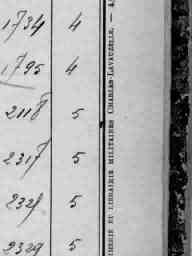 1734 4
1795 4
2118 5
2317 5
2328 5
2329 5
IMERIE ET LIBRAIRIE MILITAIRES CHARLES-LAVAUZELLE. —